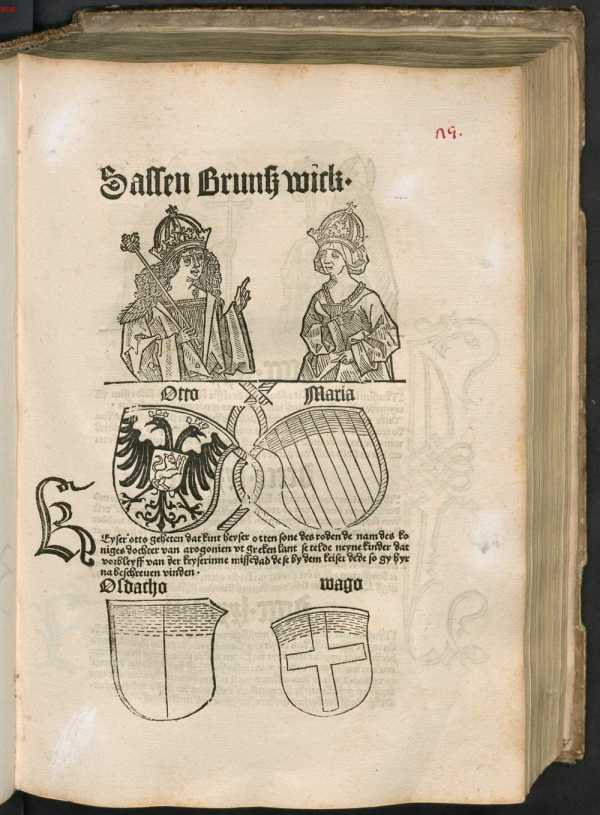 Sassen Brunßwick.
Otto Maria
Eyser otto geheten dat kint keyser otten sone des roden de nam des ko
niges dochter van arogonien vt greken lant se telde neyne kinder dat
vorbleyff van der keyserinne missedad de se by dem keiser dede so gy hyr
na beschreuen vinden.
Oldacho wago